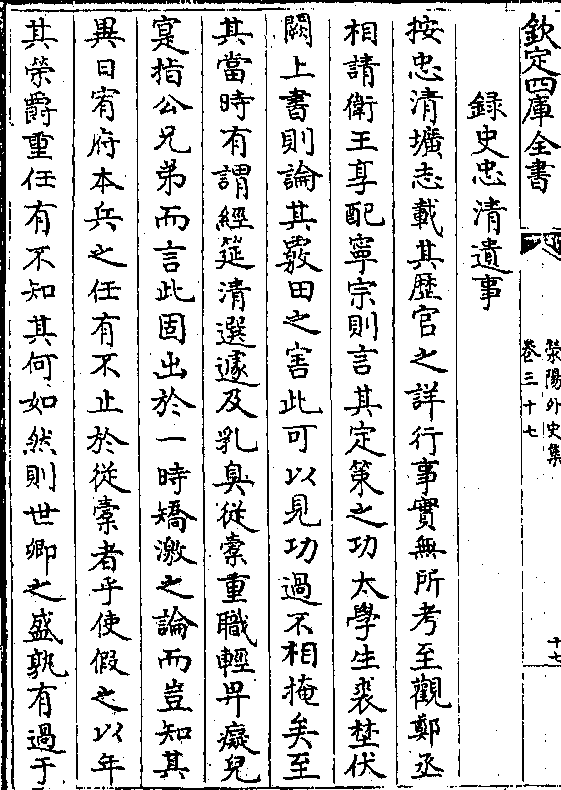 欽定四庫全書
滎陽外史集
卷三十七
十七
録史忠清遺事
按忠清壙志載其歴官之詳行事實無所考至觀鄭丞
相請衛王享配寧宗則言其定策之功太學生裘埜伏
闕上書則論其覈田之害此可以見功過不相掩矣至
其當時有謂經筵清選遽及乳臭從橐重職輕畀癡兒
寔指公兄弟而言此固出於一時矯激之論而豈知其
異日宥府本兵之任有不止於從橐者乎使假之以年
其榮爵重任有不知其何如然則世卿之盛孰有過于